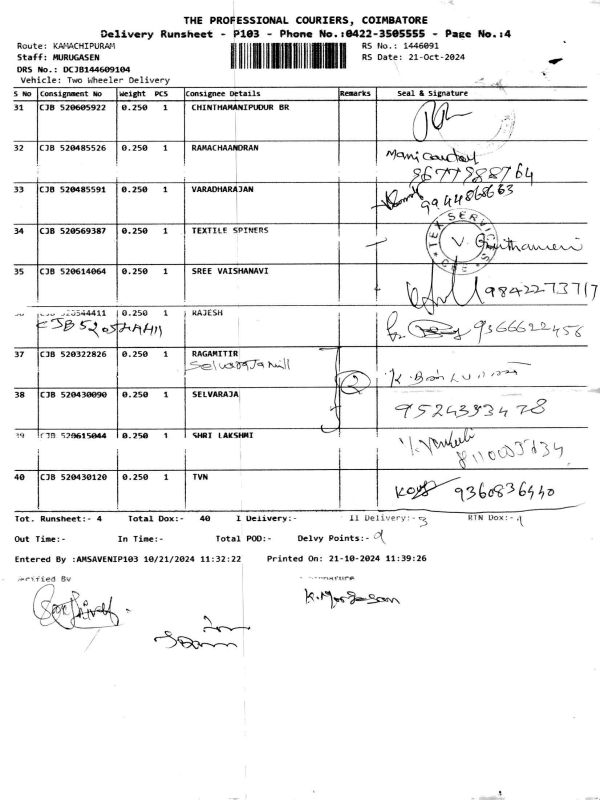 THE PROFESSIONAL COURIERS, COIMBATORE
Delivery Runsheet - P103 - Phone No.:0422-3505555 - Page No.:4
Route: KAMACHIPURAM RS No.: 1446091
Staff: MURUGASEN RS Date: 21-Oct-2024
DRS No.: DCJB144609104
Vehicle: Two Wheeler Delivery
S No Consignment No Weight PCS Consignee Details Remarks Seal & Signature
31 CJB 520605922 0.250 1 CHINTHAMANIPUDUR BR
32 CJB 520485526 0.250 1 RAMACHAANDRAN
9677988764
33 CJB 520485591 0.250 1 VARADHARAJAN
9944868663
34 CJB 520569387 0.250 1 TEXTILE SPINERS TEX SERVICES V.
35 CJB 520614064 0.250 1 SREE VAISHANAVI 9842273717
CJB 520544411 0.250 1 RAJESH
CJB520544411 9366622456
37 CJB 520322826 0.250 1 RAGAMITIR
Selvaraja mill 2 K.
38 CJB 520430090 0.250 1 SELVARAJA
9524393478
39 CJB 520615044 0.250 1 SHRI LAKSHMI
40 CJB 520430120 0.250 1 TVN 9360836440
Tot. Runsheet:- 4 Total Dox:- 40 I Delivery:- II Delivery:- RTN Dox:-
Out Time:- In Time:- Total POD:- Delvy Points:-
Entered By :AMSAVENIP103 10/21/2024 11:32:22 Printed On: 21-10-2024 11:39:26
Verified By Signature
K.Murugesan